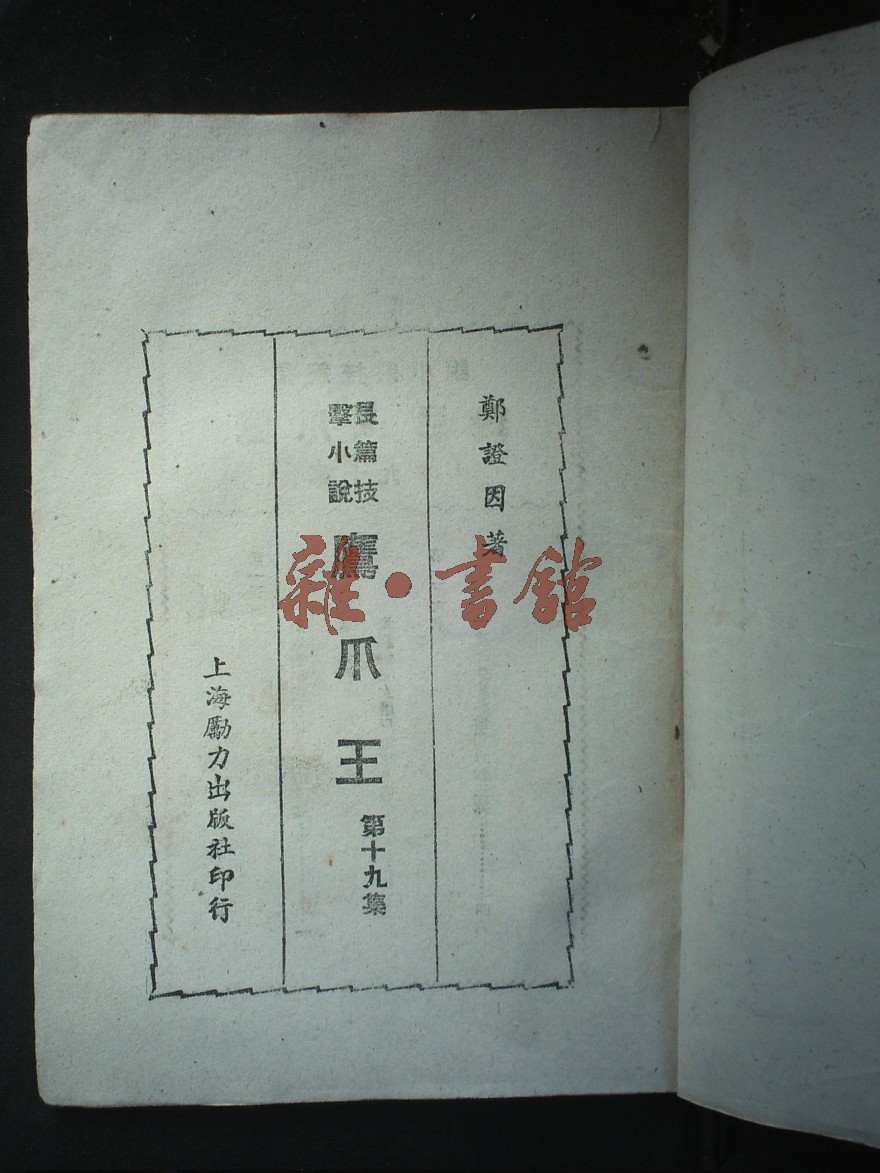 鄭證因著
長篇技
擊小說
鷹爪王
第十九集
上海勵力出版社印行
雜·書館